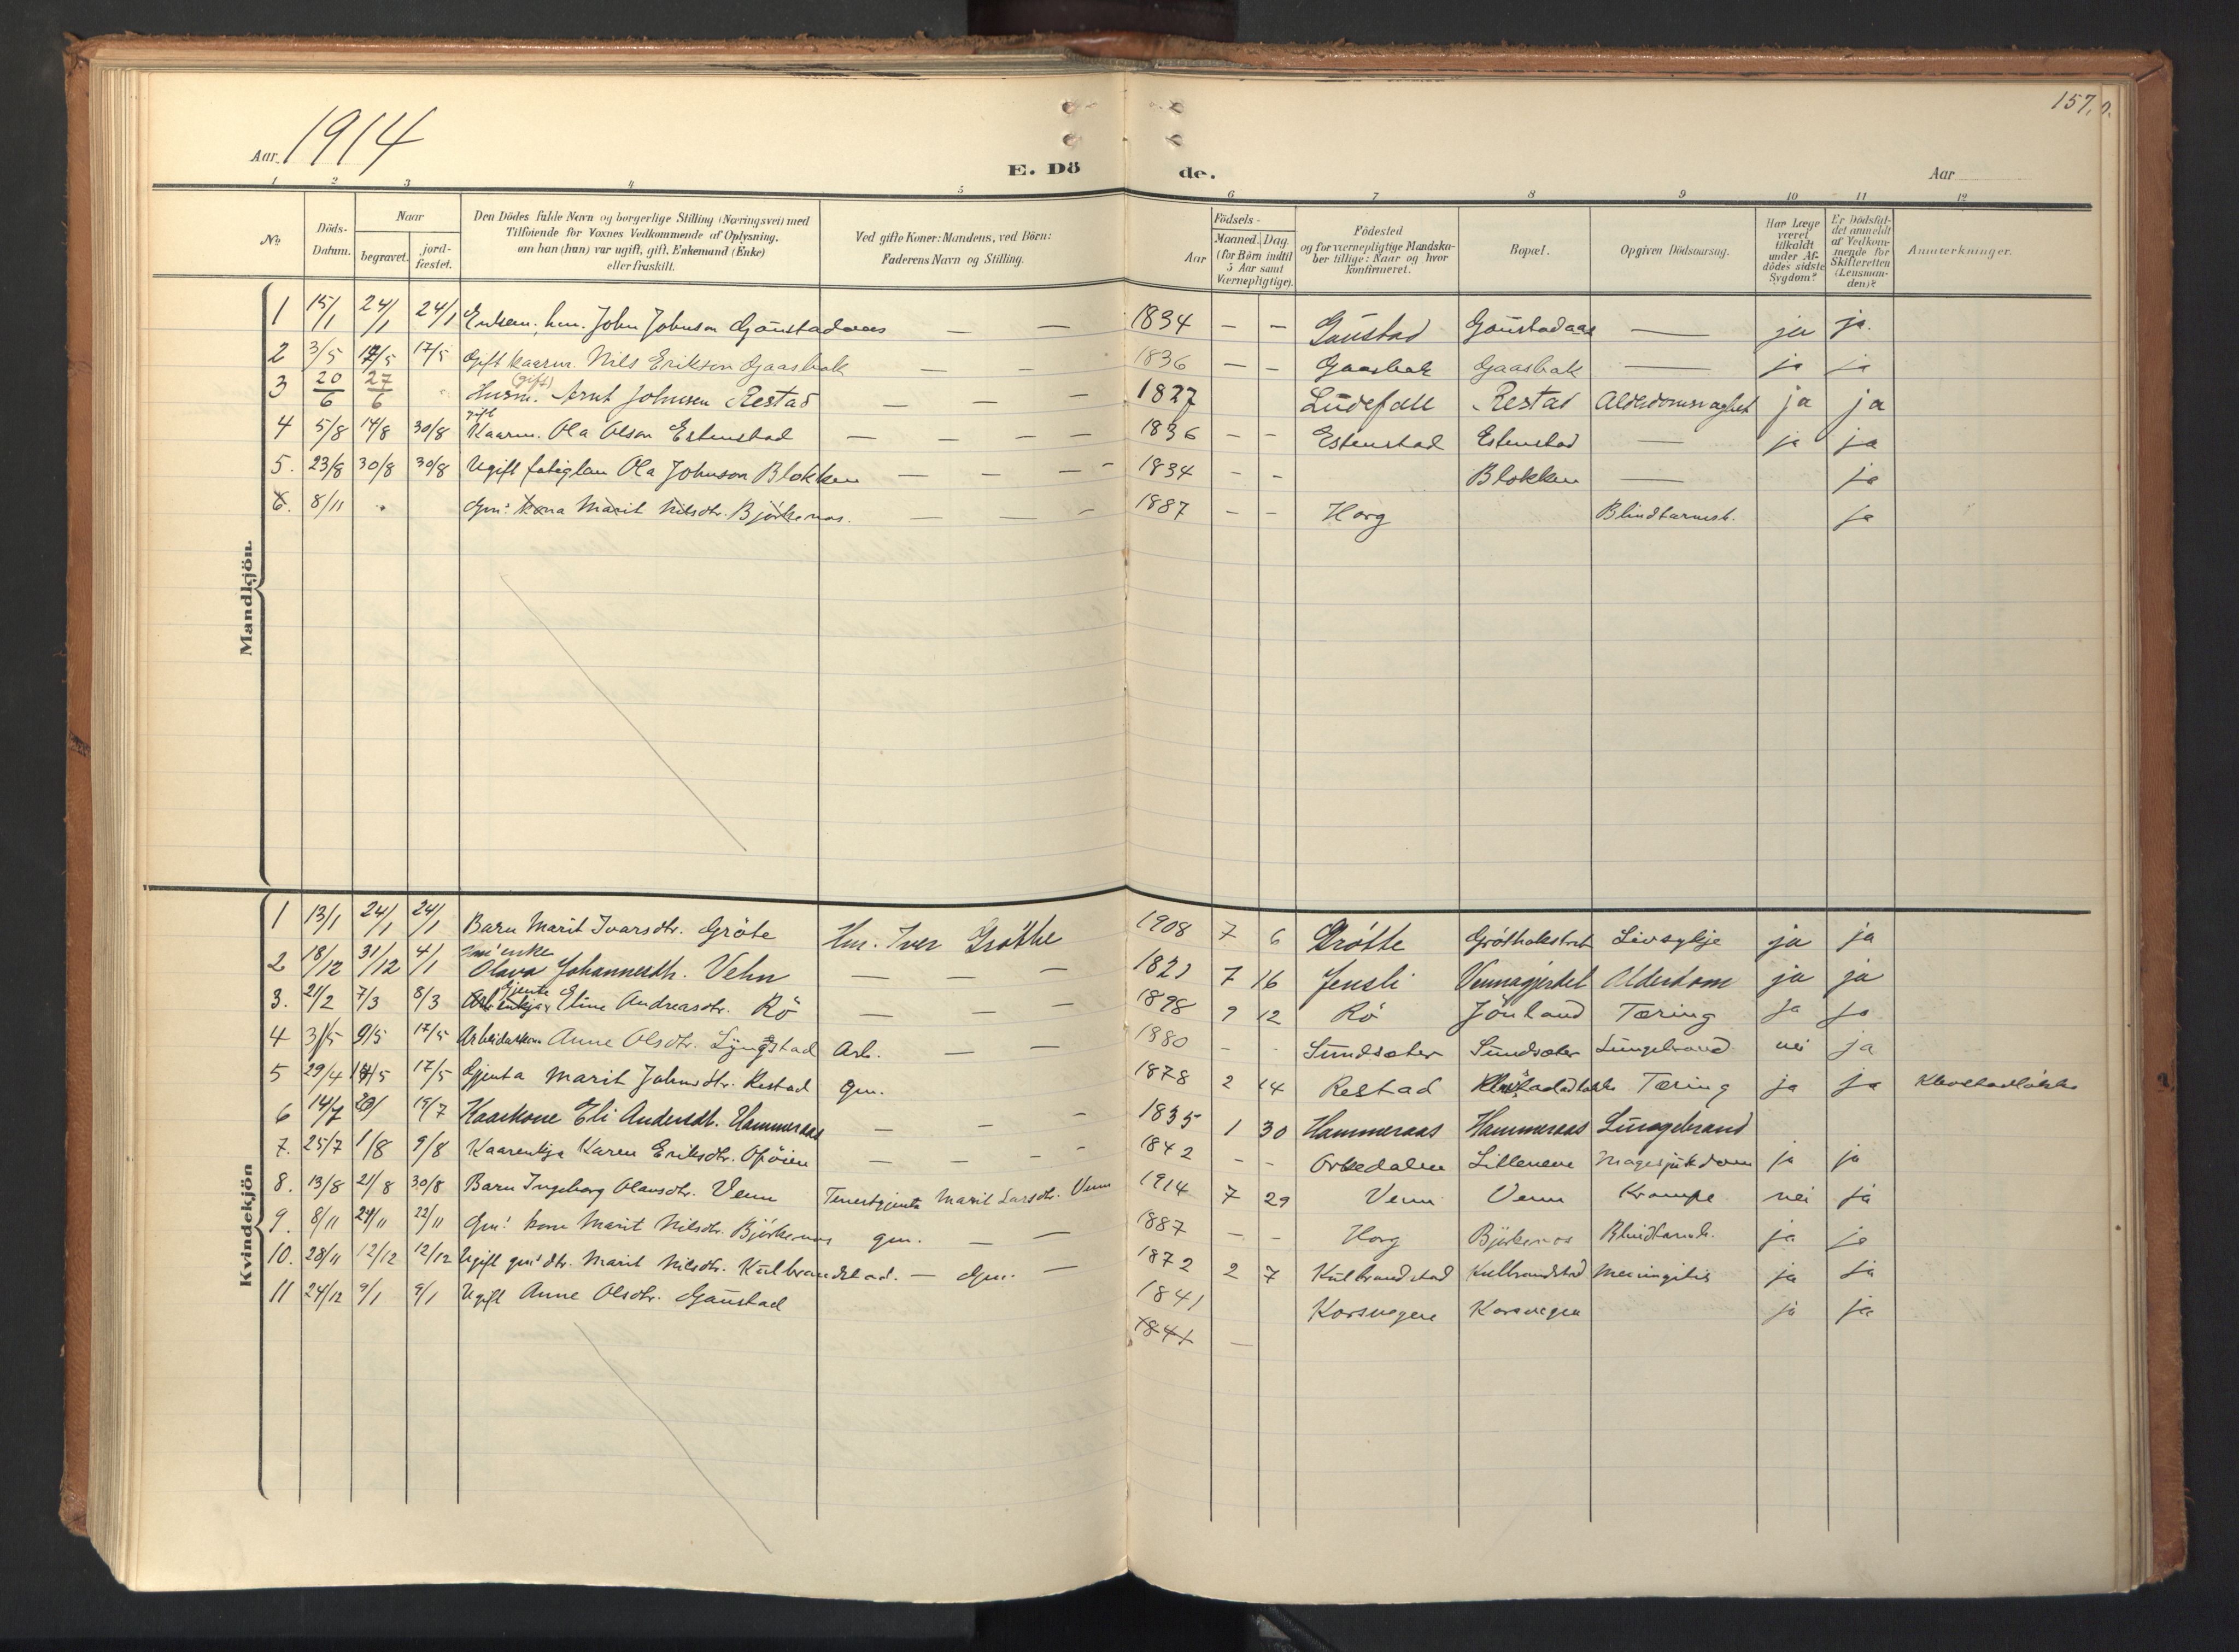 157,
Aar 1914
E. Dö de.
Aar
1 2 3 4 5 6 7 8 9 10 11 12
No
Döds-Datum.
Naar
begravet.
jord-fæstet.
Den Dödes fulde Navn og borgerlige Stilling (Næringsvei) med
Tilföiende for Voxnes Vedkommende af Oplysning,
om han (hun) var ugift, gift, Enkemand (Enke)
eller fraskilt.
Ved gifte Koner: Mandens, ved Börn:
Faderens Navn og Stilling.
Födsels-
Aar
Maaned. Dag.
(for Börn indtil
5 Aar samt
Værnepligtige).
Födested
og for værnepligtige Mandska-
ber tillige: Naar og hvor
konfirmeret.
Bopæl.
Opgiven Dödsaarsag.
Har Læge
været
tilkaldt
under Af-
dödes sidste
Sygdom?
Er Dödsfal-
det anmeldt
af Vedkom-
mende for
Skifteretten
(Lensman-
den)?
Anmærkninger.
Mandkjön.
1 15/1 24/1 24/1 John Johnson Gaustadaas — — 1834 — — Gaustad Gaustadaas — ja ja.
2 3/5 17/5 17/5 Gift kaarm. Nils Erikson Gaasbak — — 1836 — — Gaasbak Gaasbak — ja ja
3 20/6 27/6 Husm. (gift) Arnt Johnsen Restad — — — 1827 Restad Alderdomsvaghet ja ja
4 5/8 14/8 30/8 gift Kaarm. Ola Olson Estenstad — — — — 1836 — — Estenstad Estenstad — ja ja
5. 23/8 30/8 30/8 Ugift Ola Johnson Blokken — — — — 1834 — - Blokken — ja
6. 8/11 Gm. kona Marit Nilsdtr. Björkenos. — — — 1887 — — Horg Blindtarmsb. ja
Kvindekjön
1 13/1 24/1 24/1 Barn Marit Ivarsdtr. Gröte Hm. Iver Gröthe 1908 7 6 Gröthe Livsykje ja ja
2 18/12 31/12 4/1 enke Olava Johannesdtr. Vehn — — — 7 16 Jensli Vennagjerdet Alderdom ja ja
3. 21/2 7/3 8/3 Gjente Eline Andreasdtr. Rö — — — 1898 9 12 Rö Jönland Tæring ja ja
4 31/5 9/5 17/5 Arbeiderkone Anne Olsdtr. Lyngstad Arb. — — 1880 - - Sundsæter Sundsæter Lungebrand nei ja
5 29/4 14/5 17/5 Gjenta Marit Johnsdtr. Restad Gm. 1878 2 14 Restad Tæring ja ja
6 14/7 19/7 Kaarkone Eli Andersdt. Hammeraas — — - 1835 1 30 Hammeraas Hammeraas Lungebrand
7. 25/7 1/8 9/8 Kaarenkja Karen Eriksdtr. Opöien — — - - 1842 - - Orkedalen Litleneve Magesjukdom ja ja
8. 13/8 21/8 30/8 Barn Ingeborg Olavsdtr. Venn Tenestgjenta Marit Larsdtr. Venn 1914 7 29 Venn Venn Krampe nei ja
9. 8/11 24/11 22/11 Gm. kone Marit Nilsdtr. Björkenos gm. — — 1887 — — Horg Björkenos Blindtarmb. ja ja
10. 28/11 12/12 12/12 Ugift gm. dtr. Marit Nilsdtr. Kulbrandstad. — Gm. — 1872 2 7 Kulbrandstad Kulbrandstad Meningitis ja ja
11 24/12 9/1 9/1 Ugift Anne Olsdtr. Gaustad 1841 Korsvegen Korsvegen ja ja
1841 —